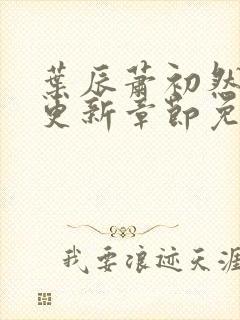 葉辰蕭初然
更新章節免
我要浪迹天涯